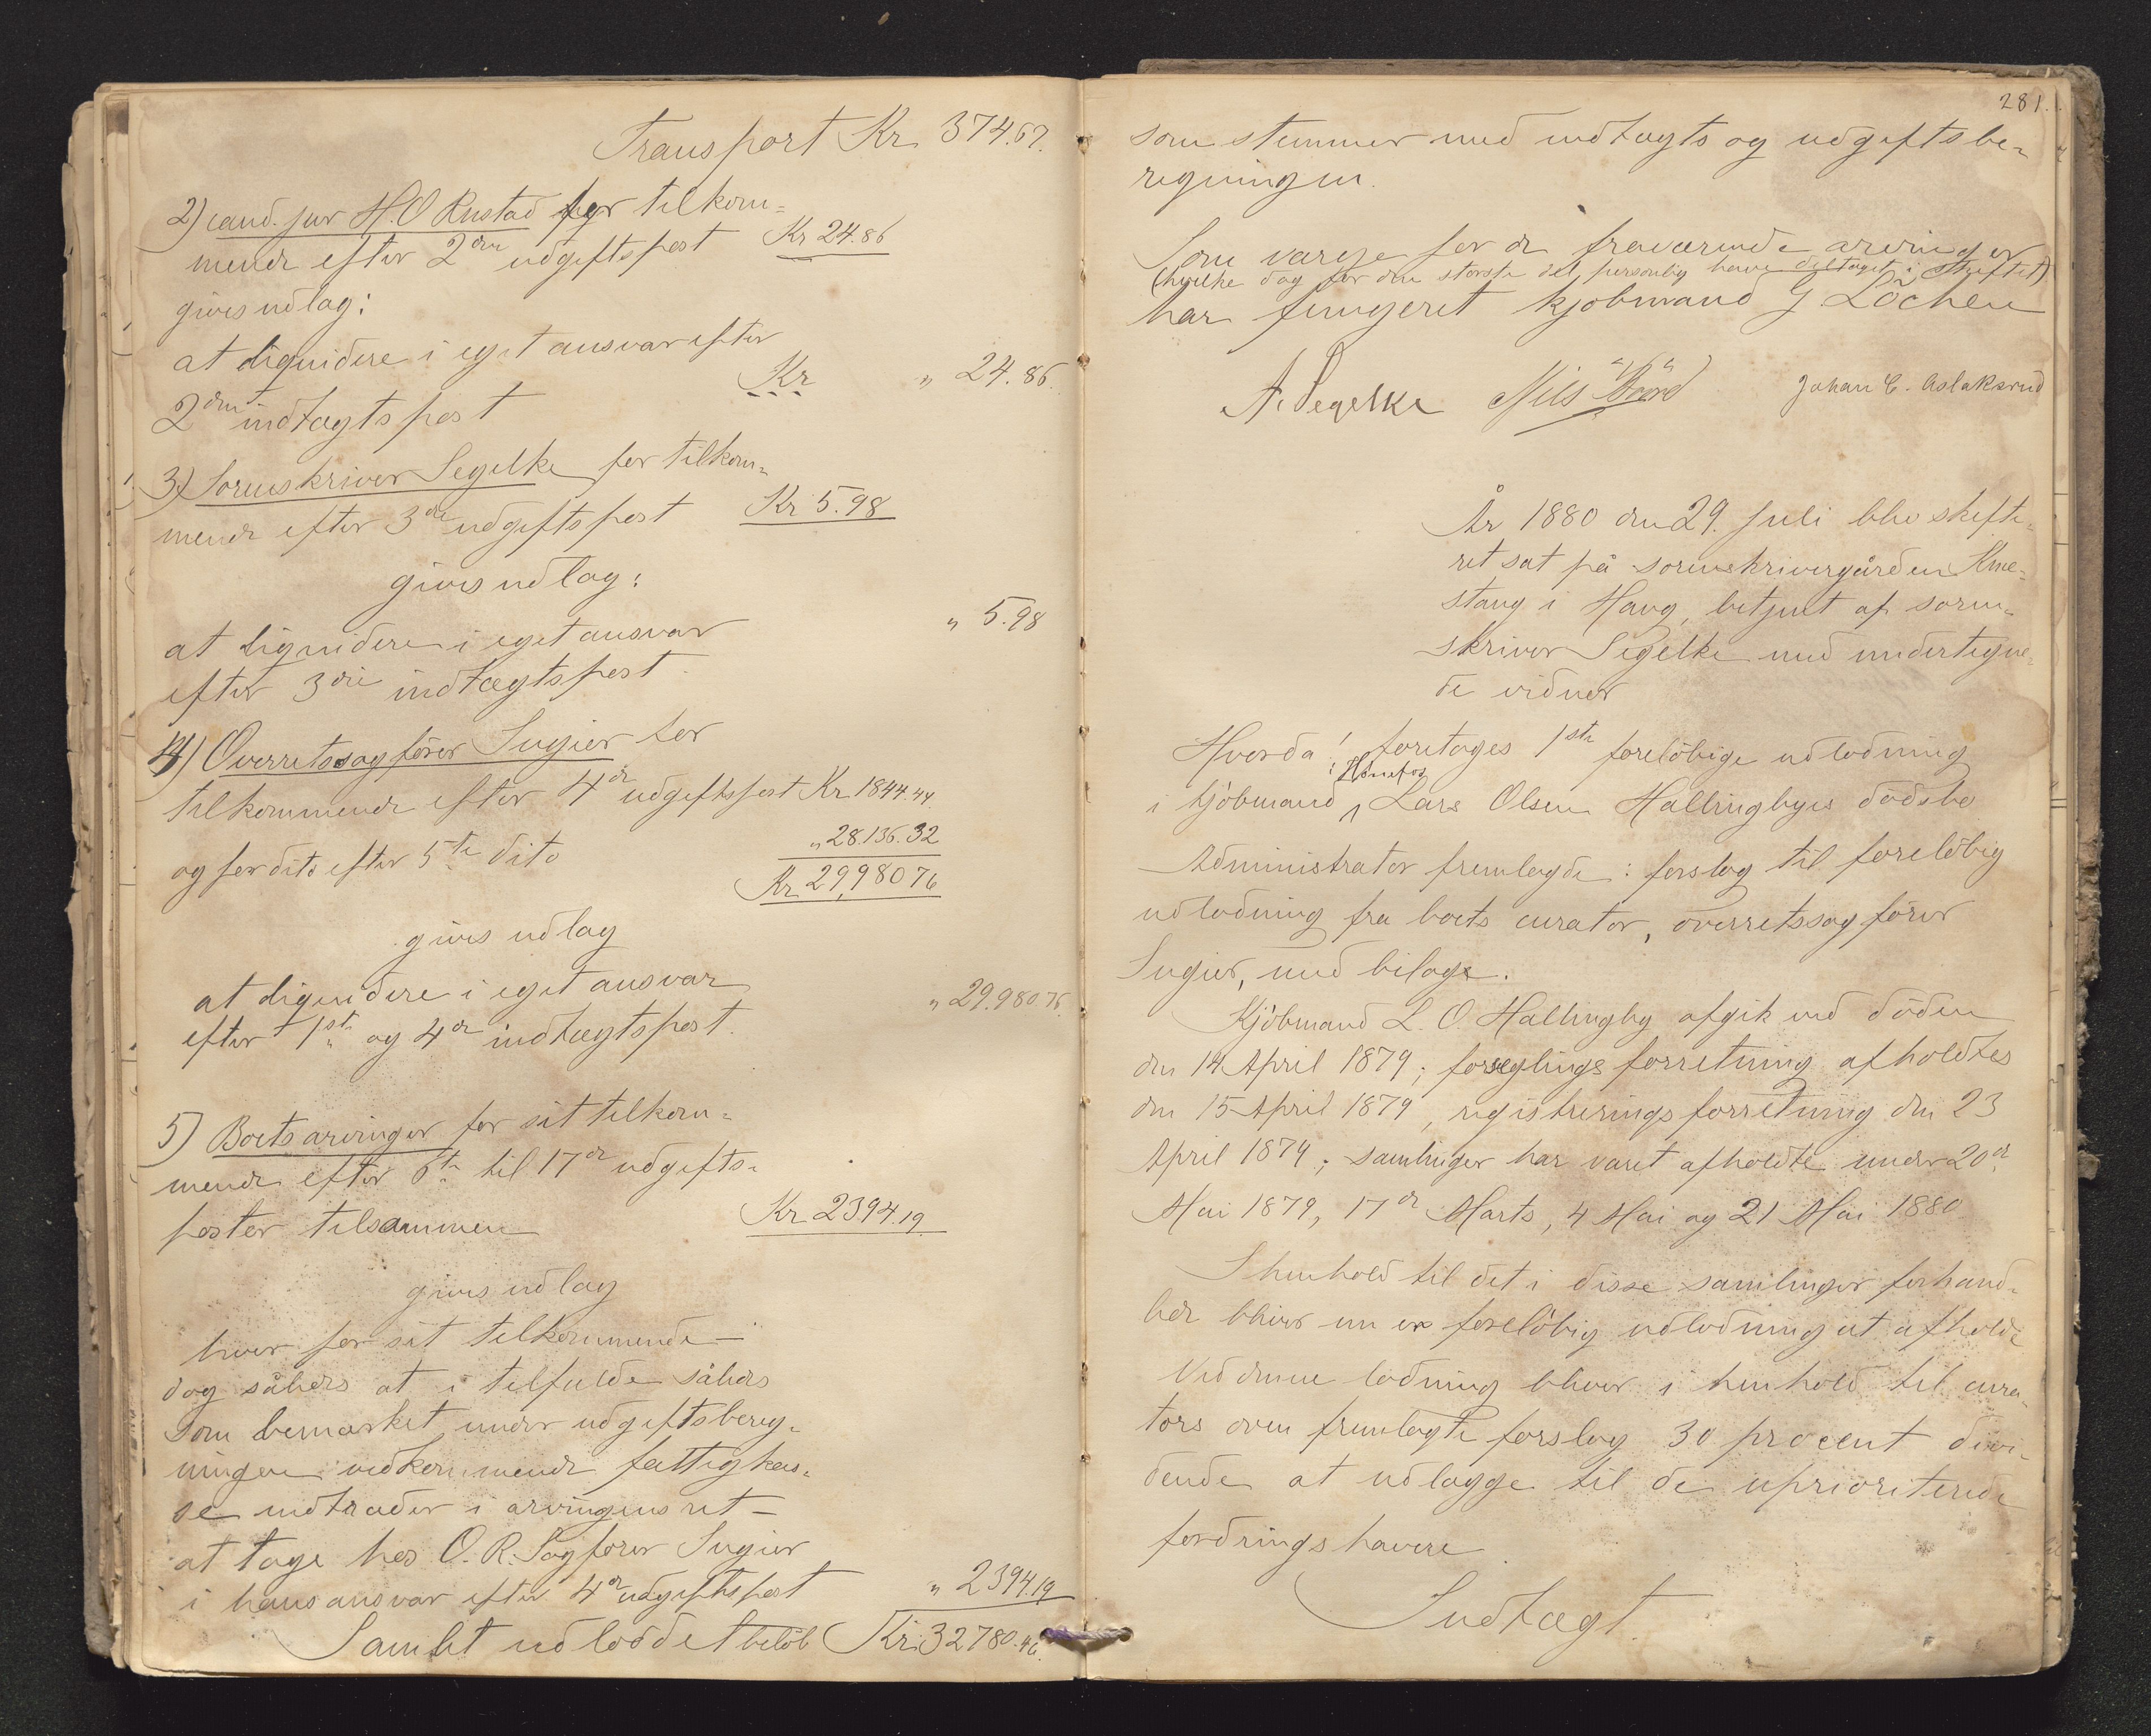 Transport Kr 374.67.
2) cand. jur H.O Rustad for tilkom=
mende efter 2den udgiftspost Kr 24.86
gives udlag:
at liquidere i eget ansvar efter
2den indtægtspost Kr " 24.86.
3) Sorenskriver Segelke for tilkom=
mende efter 3die udgiftspost Kr 5.98
gives udlag:
at liquidere i eget ansvar " 5.98
efter 3die indtægtspost.
4) Overretssagfører Sugier for
tilkommende efter 4de udgiftspost Kr 1844.44.
og for dito efter 5te dito "28.136.32
Kr 29,980 76
gives udlag
at liquidere i eget ansvar
efter 1ste og 4de indtægtspost. " 29.980.76.
5) Boets arvinger for sit tilkom=
mende efter 6te til 17de udgifts=
poster tilsammen Kr 2394.19.
gives udlag
hver for sit tilkommende –
dog således at i tilfælde således
som bemærket under udgiftsbereg=
ningen vedkommende fattigkas=
se indtræder i arvingens ret –
at tage hos O.R.Sagfører Sugier
i hans ansvar efter 4de udgiftspost " 2394.19
Samlet udloddet beløb Kr. 32780.46.
281.
som stemmer med indtægts og udgiftsbe=
regningen.
Som værge for de fraværende arvinger
(hvilke dog for den største del personlig have deltaget i skiftet)
har fungeret kjøbmand G Löchen
A. Segelke Nils Baard Johan E. Aslaksrud
År 1880 den 29. Juli blev skifte=
ret sat på sorenskrivergården Kne=
stang i Haug, betjent af soren=
skriver Segelke med undertegne=
de vidner
Hvorda! foretages 1ste foreløbige udlodning
i Hønefos
i kjøbmand Lars Olsen Hallingbyes dødsbo
Administrator fremlagde: forslag til foreløbig
udlodning fra boets curator, overretssagfører
Sugier, med bilage.
Kjøbmand L. O. Hallingby afgik ved døden
den 14 April 1879; forseglings forretning afholdtes
den 15 April 1879, registrerings forretning den 23
April 1879; samlinger har været afholdte under 20de
Mai 1879, 17de Marts, 4 Mai og 21 Mai 1880
I henhold til det i disse samlinger forhand=
lede bliver nu en foreløbig udlodning at afholde
Ved denne lodning bliver i henhold til cura=
tors oven fremlagte forslag 30 procent divi=
dende at udlægge til de uprioriterede
fordringshavere.
Indtægt.